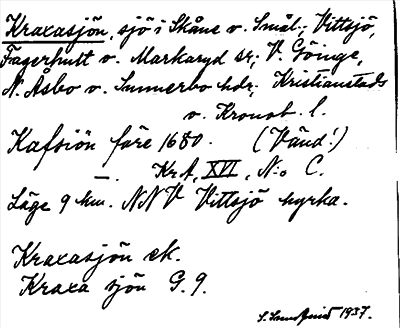 Kraxasjön, sjö i Skåne o. Smål.; Vittsjö,
Fagerhult o. Markaryd sr; V. Göinge,
N. Åsbo o. Sunnerbo hdr; Kristianstads
o. Kronob. l.
Kafsiön före 1680. (Vänd!)
—. Krt, XVI, N:o C.
Läge 9 km. NNV Vittsjö kyrka.
Kraxasjön ek.
Kraxa sjön G. 9.
1937.